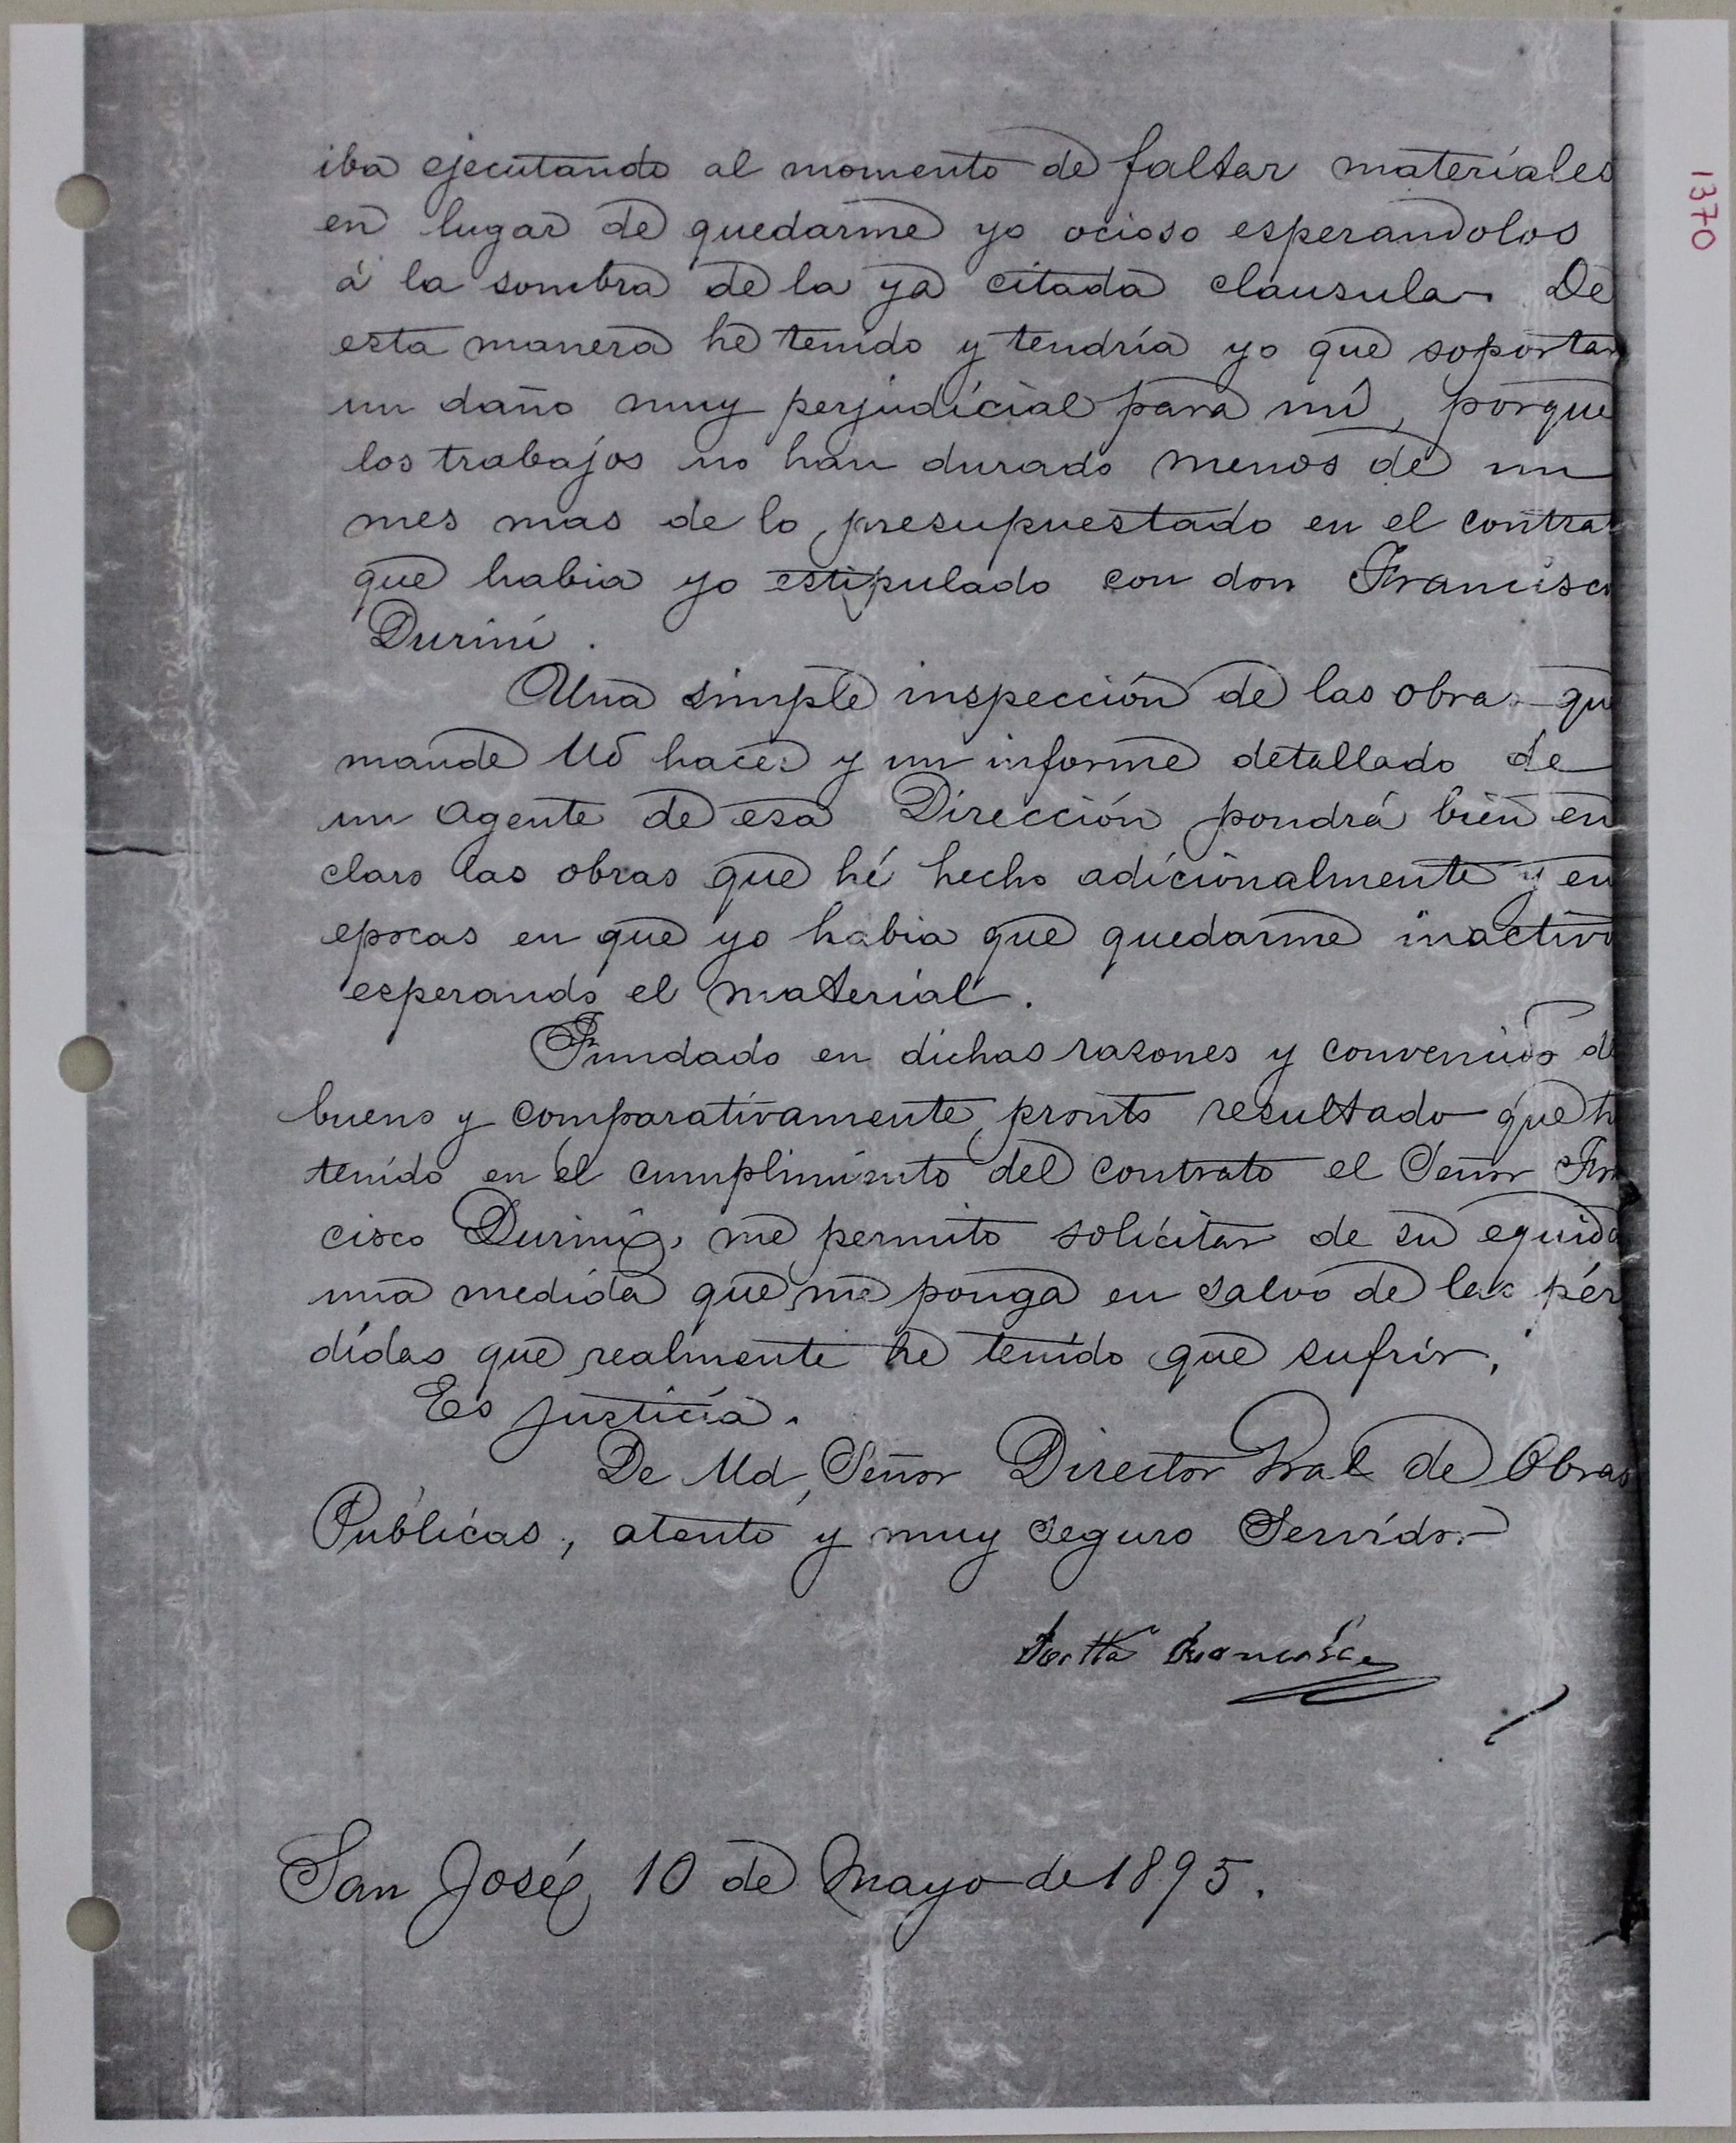 1370
iba ejecutando al momento de faltar materiales
en lugar de quedarme yo ocioso esperandolos
á la sombra de la ya citada clausula. De
esta manera he tenido y tendría yo que soportar
un daño muy perjudicial para mí, porque
los trabajos no han durado menos de un
mes mas de lo presupuestado en el contra
que habia yo estipulado con don Francisco
Durini.
Una simple inspección de las obras que
mande Ud hacer y un informe detallado de
un Agente de esa Dirección pondrá bien en
claro las obras que hé hecho adicionalmente y en
epocas en que yo habia que quedarme inactivo
esperando el material.
Fundado en dichas razones y convenido de
bueno y comparativamente pronto resultado que h
tenido en el cumplimiento del contrato el Señor Fran
cisco Durini, me permito solicitar de su equida
una medida que me ponga en salvo de las pér
didas que realmente he tenido que sufrir.
Es justicia.
De Ud, Señor Director Gral de Obras
Públicas, atento y muy seguro Servidor
San José, 10 de Mayo de 1895.